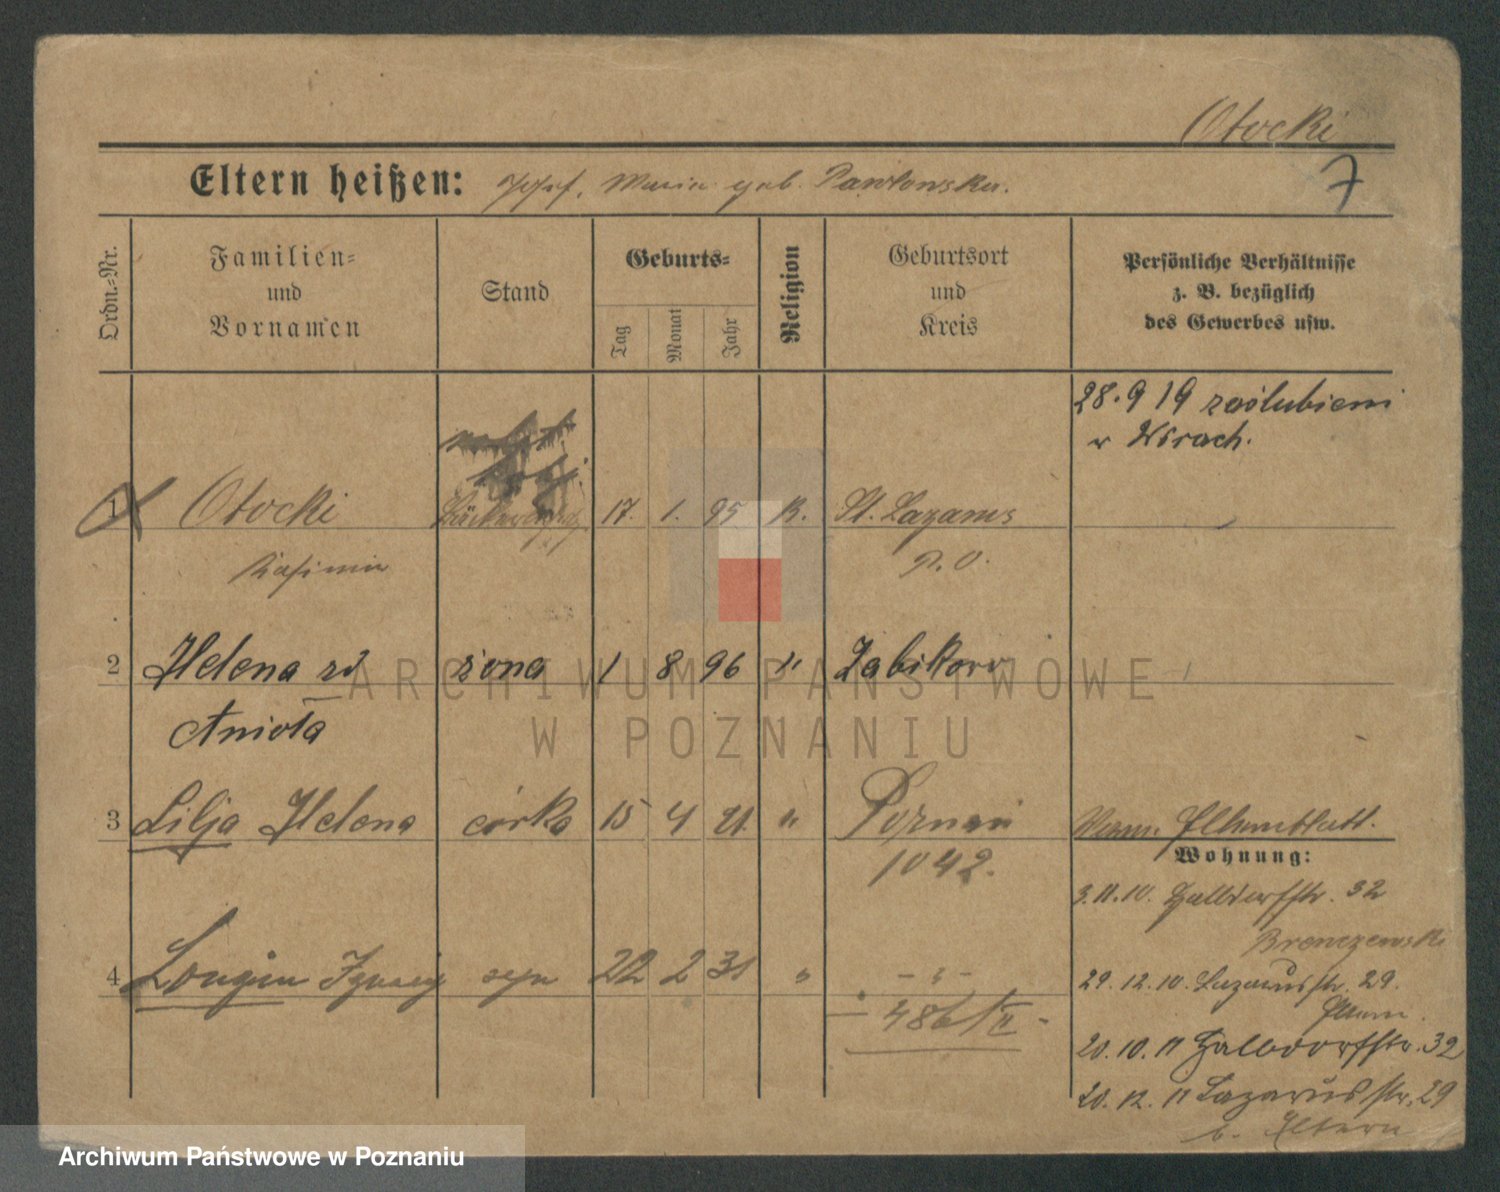 Otocki
7
Eltern heißen: Josef, Maria geb. Pawłowska.
Ordn.=Nr.
Familien=
und
Vornamen
Stand
Geburts=
Tag
Monat
Jahr
Religion
Geburtsort
und
Kreis
Persönliche Verhältnisse
z. B. bezüglich
des Gewerbes usw.
28.9 19 zaślubieni
w Wirach.
1 Otocki 17. 1. 95 K. St. Lazarus
Kasimir P.O.
2 Helena zd żona 1 8 96 " Żabikowo
Anioła
3 Lilja Helena córka 15 4 21 " Poznań
1042.
Wohnung:
4 Longin Ignacy syn 22 2 31 " - " -
486/II -
3.11.10. Halldorfstr. 32
Brenczewski
29.12.10. Lazarusstr. 29.
Eltern.
20.10.11 Halbdorfstr. 32
20.12.11 Lazarusstr. 29
b. Eltern
ARCHIWUM PAŃSTWOWE
W POZNANIU
Archiwum Państwowe w Poznaniu